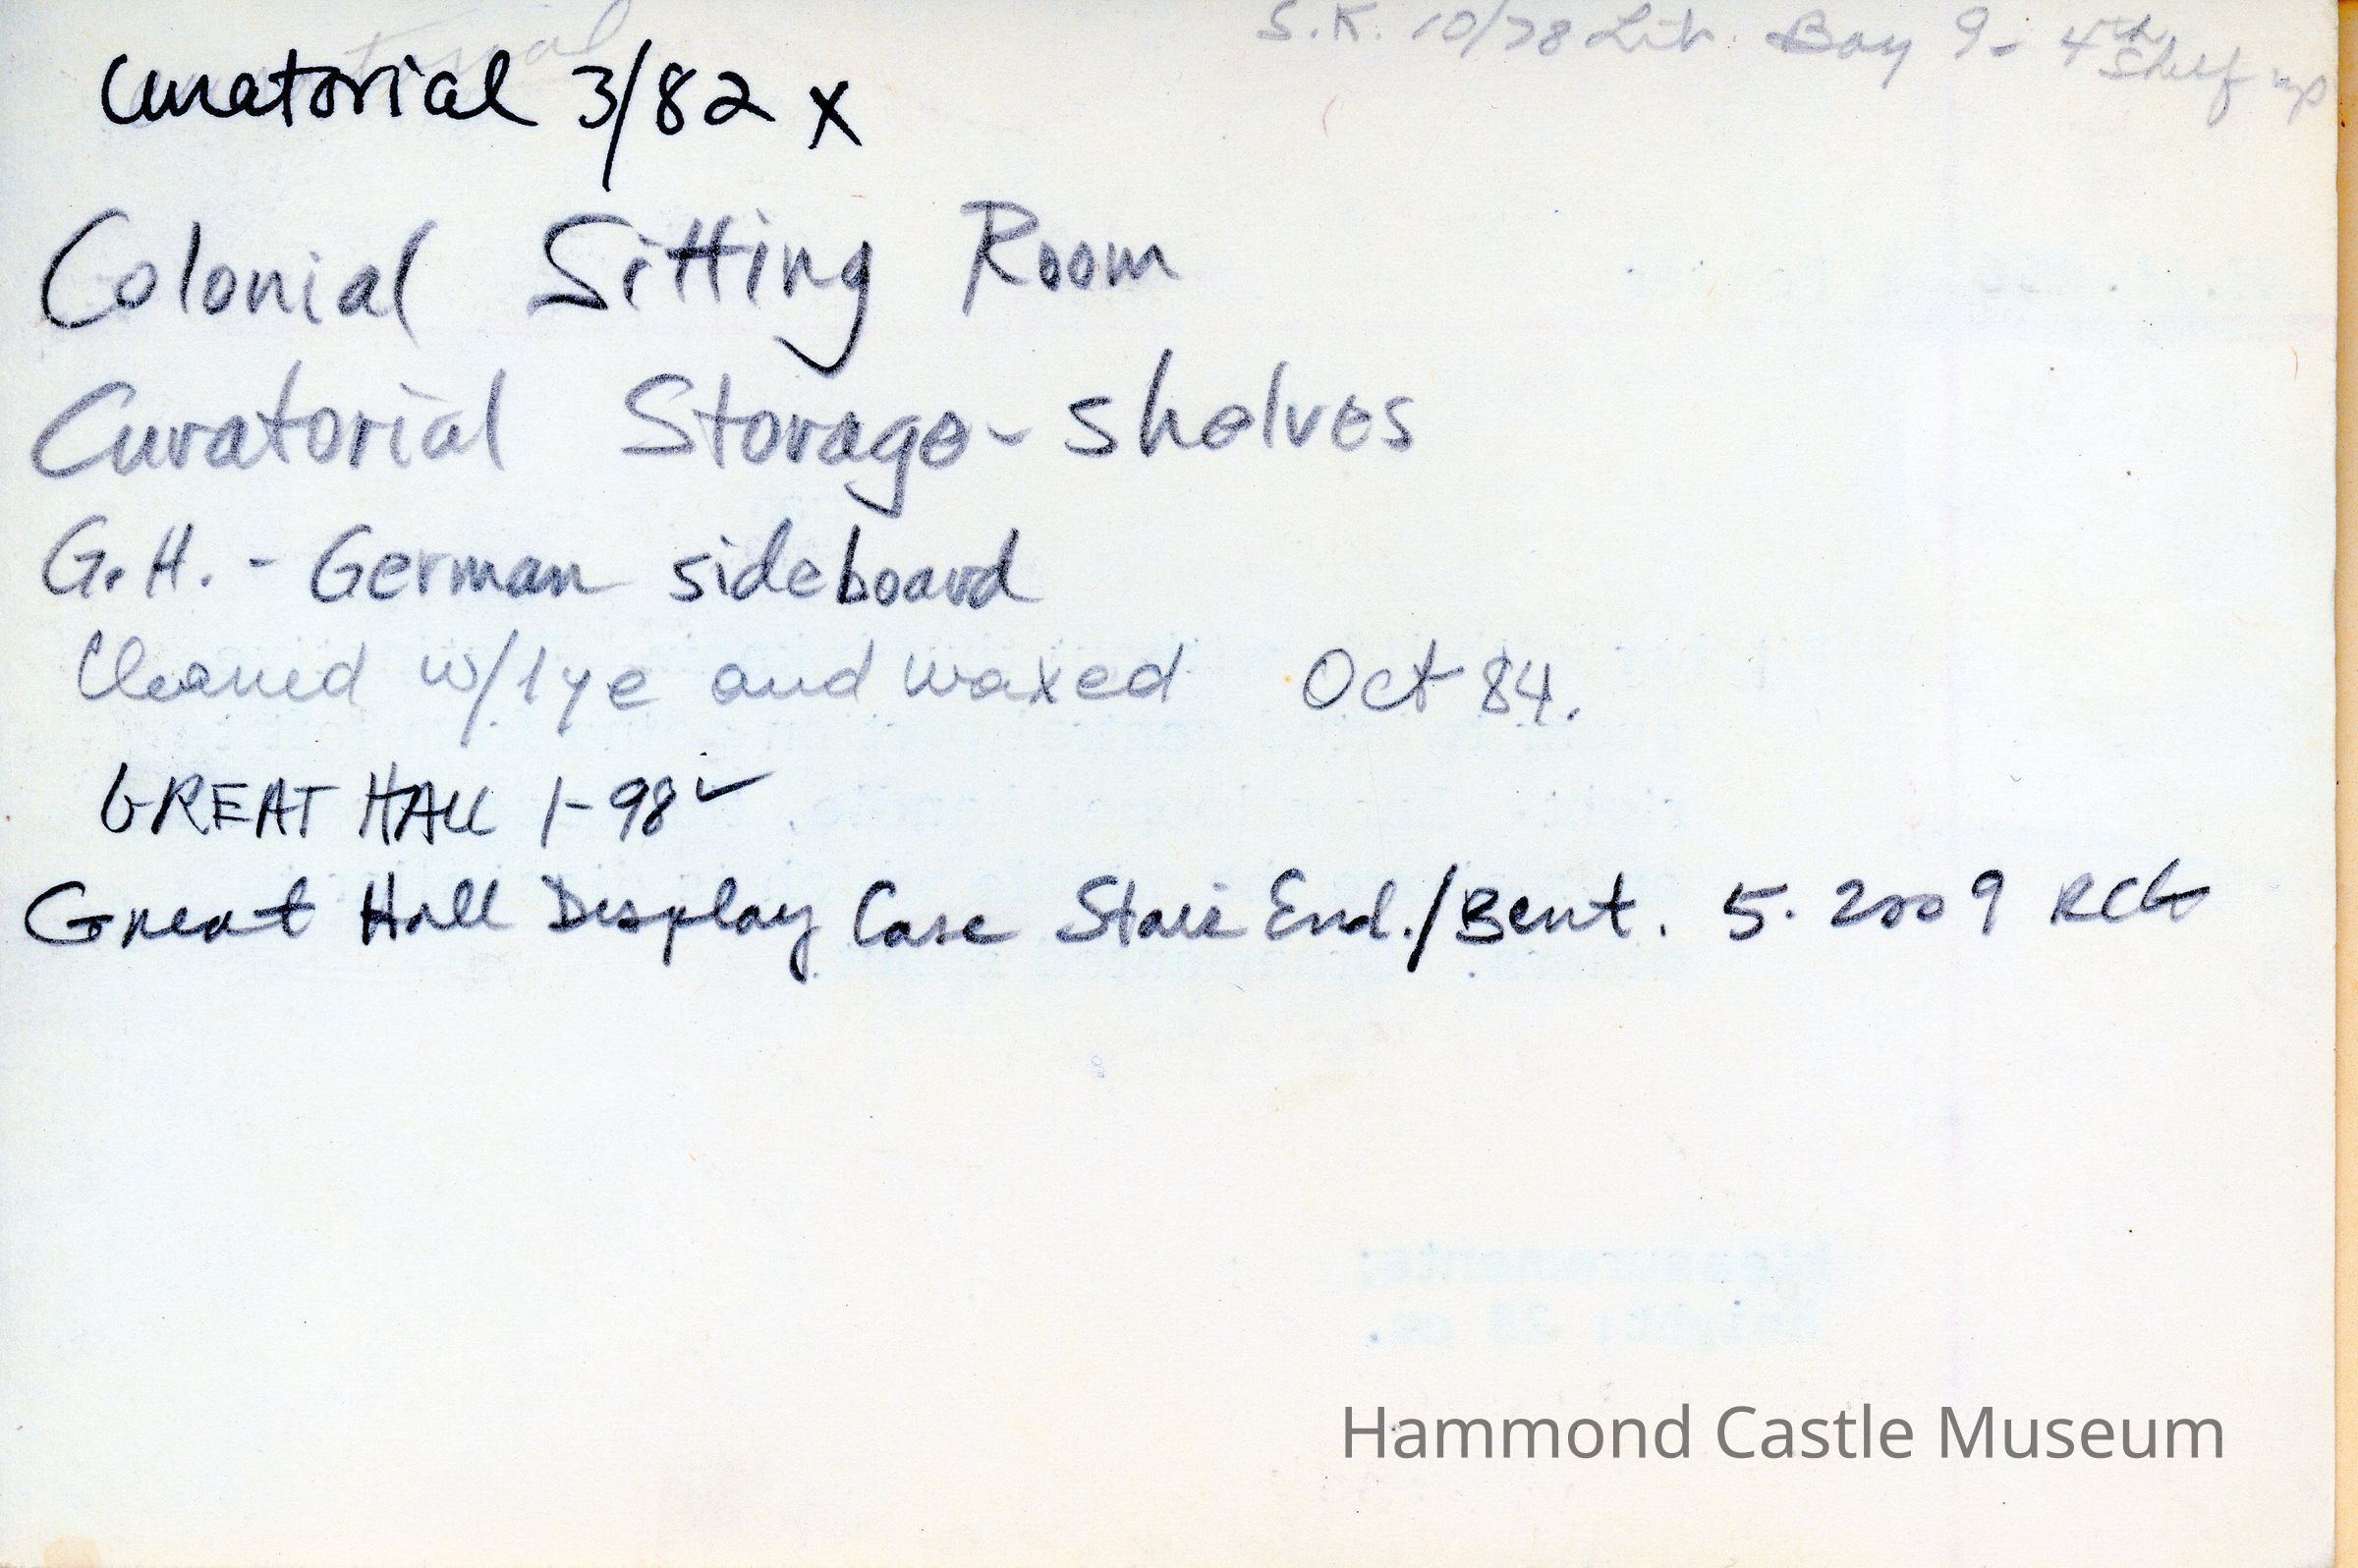 curatorial
S.K. 10/78 Lib. Bay 9 - 4th shelf up
Curatorial 3/82 x
Colonial Sitting Room
Curatorial Storage - shelves
G.H. - German sideboard
Cleaned w/lye and waxed Oct 84.
GREAT HALL 1-98 ✓
Great Hall Display Case Stair End./Bent. 5.2009 RCG
Hammond Castle Museum